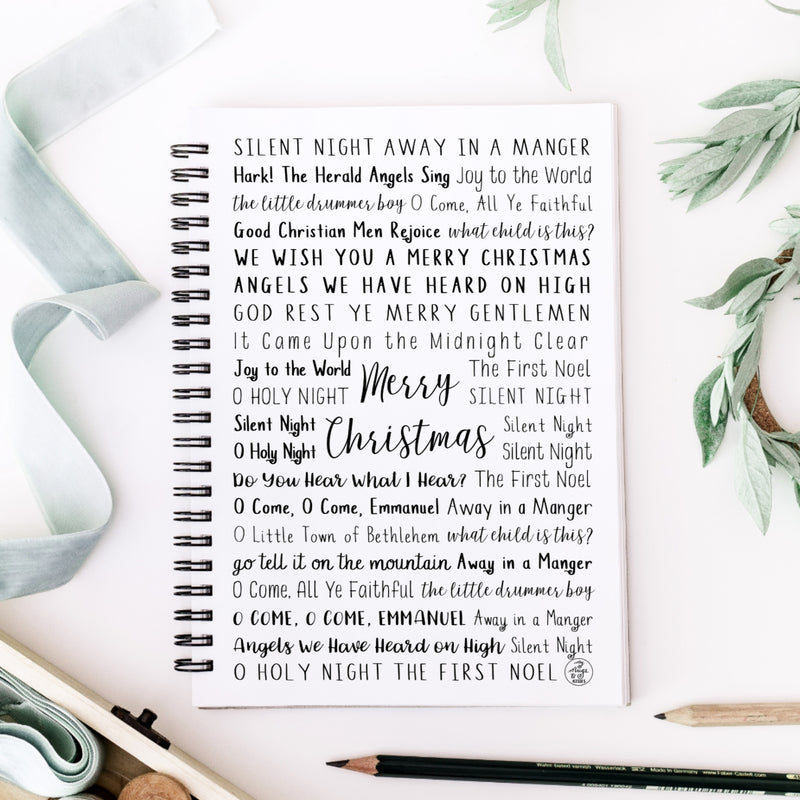 SILENT NIGHT AWAY IN A MANGER
Hark! The Herald Angels Sing Joy to the World
the little drummer boy O Come, All Ye Faithful
Good Christian Men Rejoice what child is this?
WE WISH YOU A MERRY CHRISTMAS
ANGELS WE HAVE HEARD ON HIGH
GOD REST YE MERRY GENTLEMEN
It Came Upon the Midnight Clear
Joy to the World
The First Noel
O HOLY NIGHT
Merry
SILENT NIGHT
Silent Night
Silent Night
O Holy Night
Christmas
Silent Night
Do You Hear What I Hear? The First Noel
O Come, O Come, Emmanuel Away in a Manger
O Little Town of Bethlehem what child is this?
go tell it on the mountain Away in a Manger
O Come, All Ye Faithful the little drummer boy
O COME, O COME, EMMANUEL Away in a Manger
Angels We Have Heard on High Silent Night
O HOLY NIGHT THE FIRST NOEL
Water-based varnish Made in Germany www.Faber-Castell.com